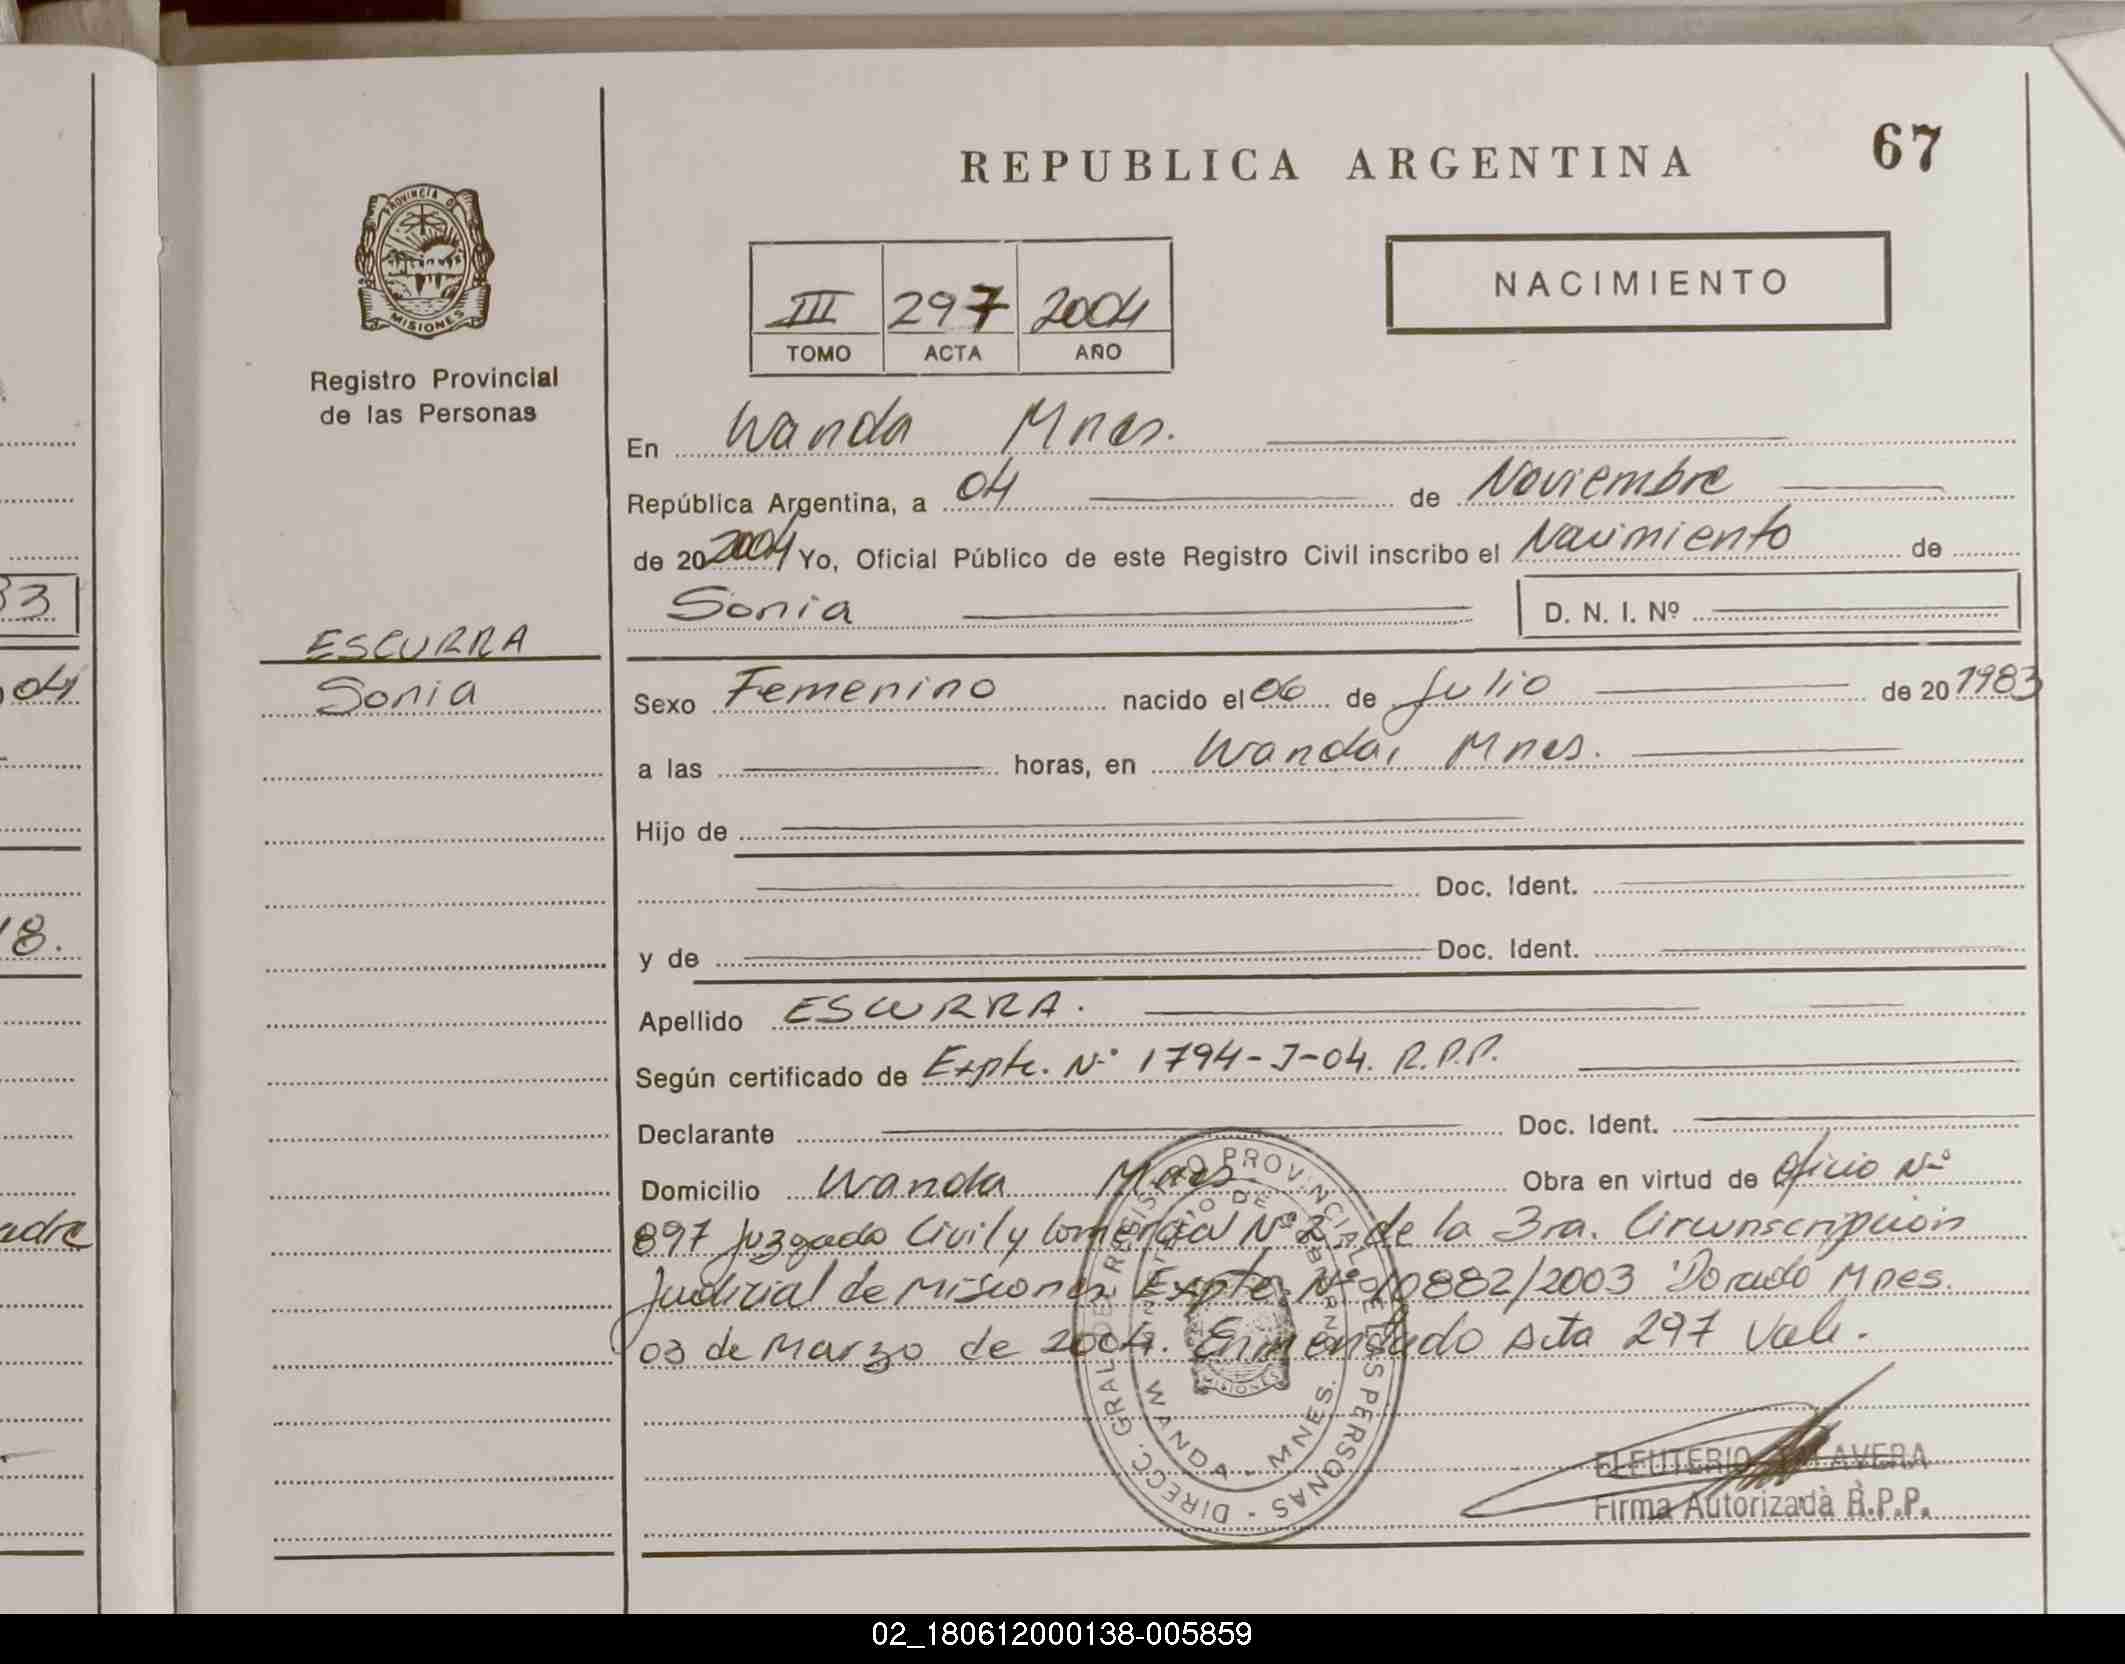 REPUBLICA ARGENTINA
67
PROVINCIA DE
MISIONES
Registro Provincial
de las Personas
NACIMIENTO
III 297 2004
TOMO ACTA AÑO
En Wanda Mnes.
República Argentina, a 04 de Noviembre
de 20 2004 Yo, Oficial Público de este Registro Civil inscribo el Nacimiento de
Sonia D. N. I. Nº
33
ESCURRA
Sonia
04
Sexo Femenino nacido el 06 de Julio de 20 1983
a las horas, en Wanda, Mnes.
Hijo de
Doc. Ident.
18.
y de Doc. Ident.
Apellido ESCURRA.
Según certificado de Expte. Nº 1794-J-04. R.P.P.
Declarante Doc. Ident.
Domicilio Wanda Mnes Obra en virtud de Oficio Nº
adre
897 Juzgado Civil y Comercial Nº 2 de la 3ra. Circunscripción
Judicial de Misiones Expte. Nº 10882/2003 Dorado Mnes.
03 de Marzo de 2004. Enmendado Acta 297 Vale.
DIRECC. GRAL DE REGISTRO PROVINCIAL DE LAS PERSONAS
MINISTERIO DE GOBIERNO
MISIONES
WANDA - MNES.
ELEUTERIO TALAVERA
Firma Autorizada R.P.P.
02_180612000138-005859